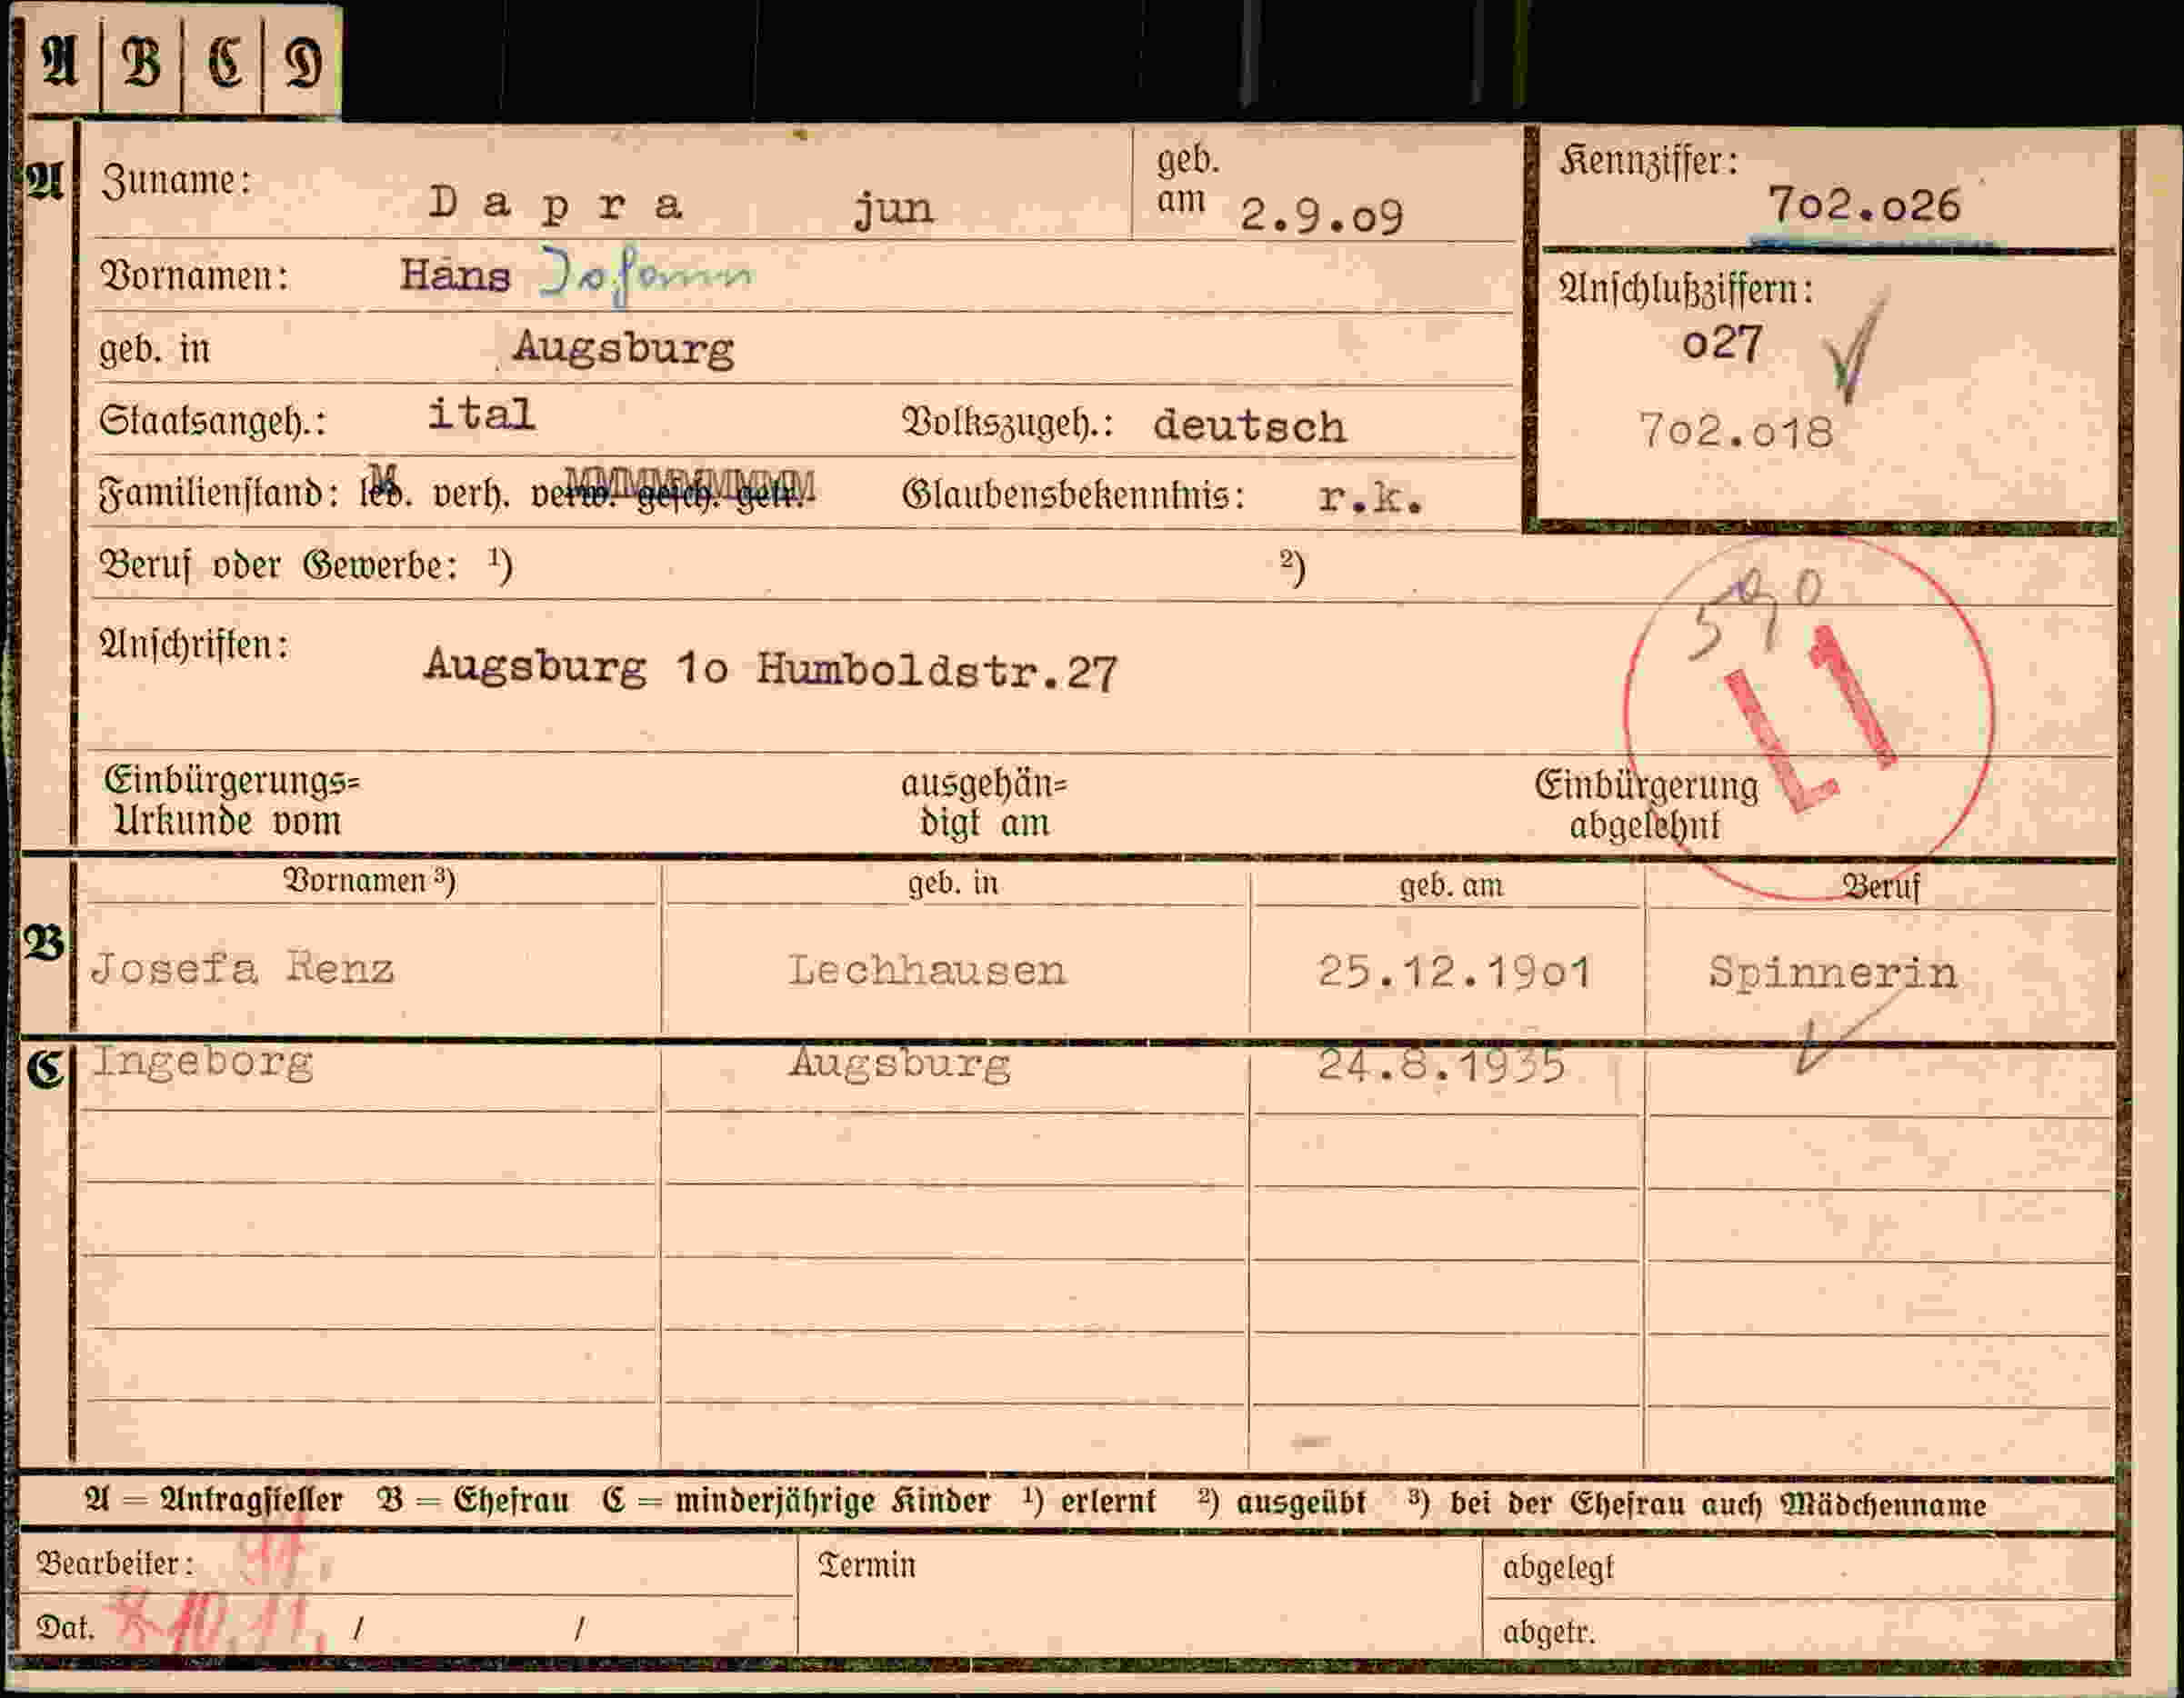 A B C D
A Zuname: Dapra jun geb. am 2.9.o9
Kennziffer: 7o2.o26
Vornamen: Hans Johann
Anschlußziffern:
o27
7o2.o18
geb. in Augsburg
Staatsangeh.: ital Volkszugeh.: deutsch
Familienstand: led. verh. verw. gesch. getr. Glaubensbekenntnis: r.k.
Beruf oder Gewerbe: 1) 2)
590
L1
Anschriften: Augsburg 1o Humboldstr.27
Einbürgerungs=
Urkunde vom
ausgehän=
digt am
Einbürgerung
abgelehnt
B Vornamen 3) geb. in geb. am Beruf
Josefa Renz Lechhausen 25.12.19o1 Spinnerin
C Ingeborg Augsburg 24.8.1935
A = Antragsteller B = Ehefrau C = minderjährige Kinder 1) erlernt 2) ausgeübt 3) bei der Ehefrau auch Mädchenname
Bearbeiter: Termin abgelegt
Dat. / / abgetr.